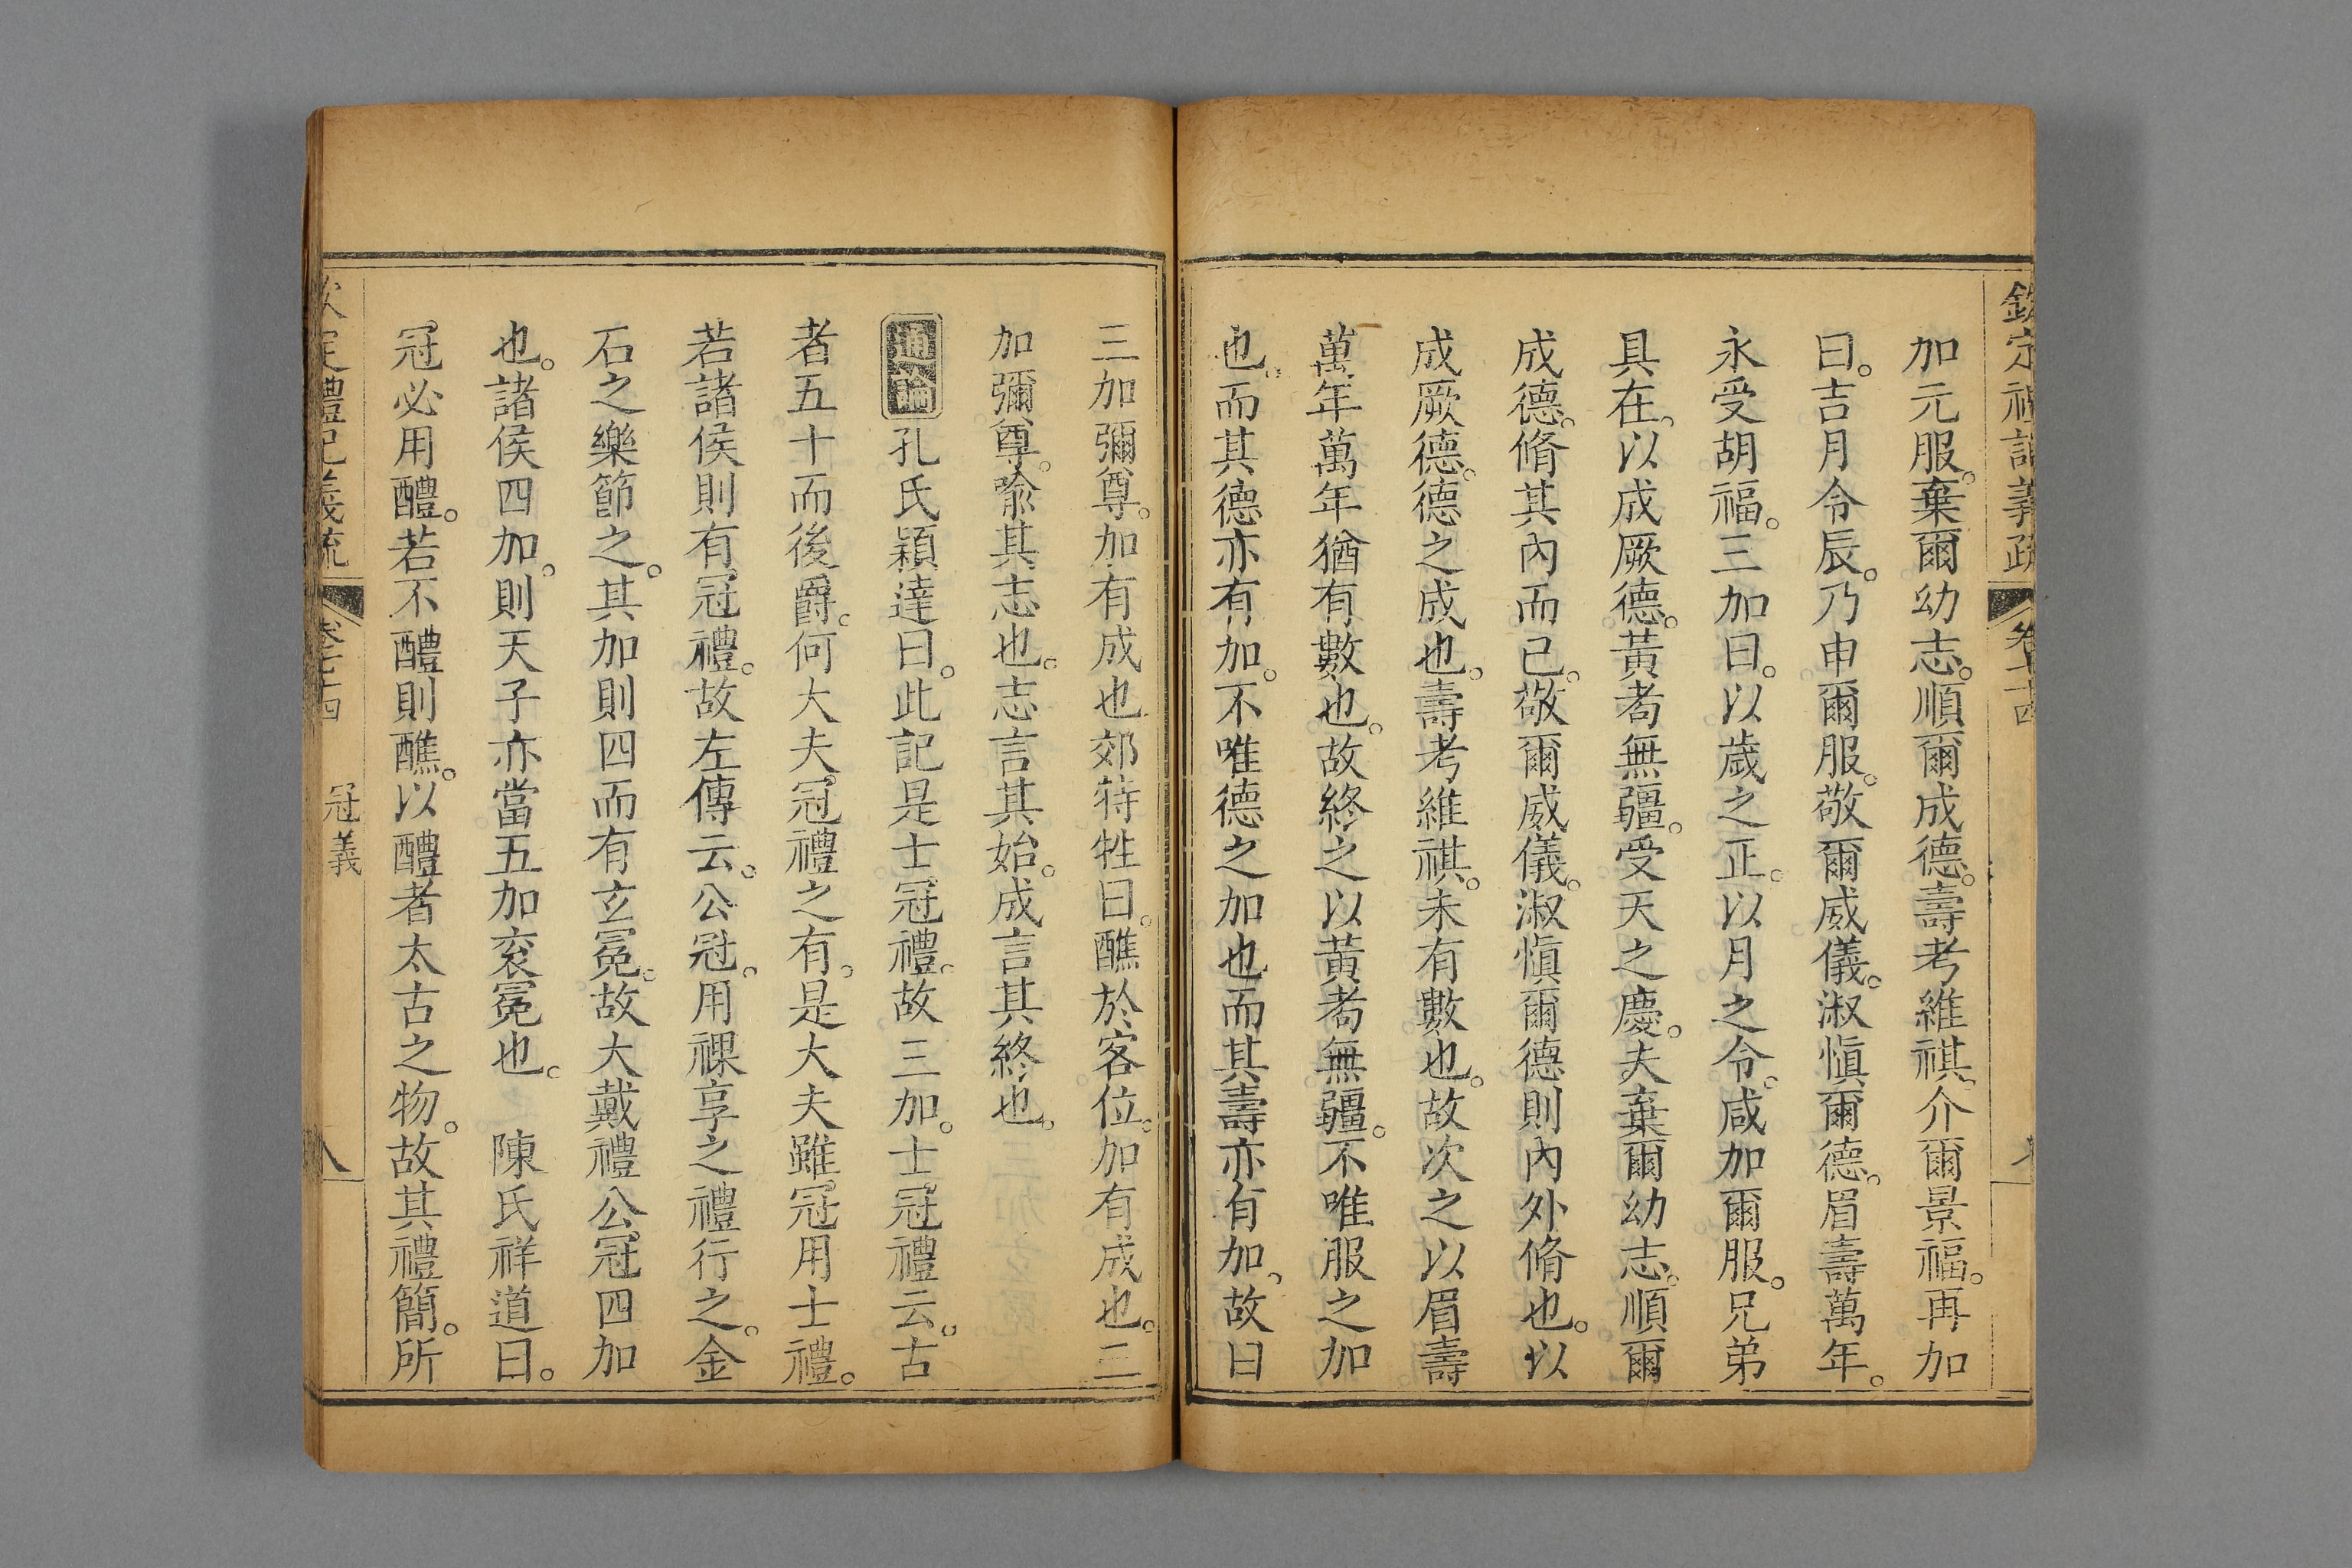 欽定禮記義疏 卷七十四
加元服。棄爾幼志。順爾成德。壽考維祺。介爾景福。再加
曰。吉月令辰。乃申爾服。敬爾威儀。淑愼爾德。眉壽萬年。
永受胡福。三加曰。以歲之正。以月之令。咸加爾服。兄弟
具在。以成厥德。黃耇無疆。受天之慶。夫棄爾幼志。順爾
成德。脩其內而已。敬爾威儀。淑愼爾德則內外脩也。以
成厥德。德之成也。壽考維祺。未有數也。故次之以眉壽
萬年萬年猶有數也。故終之以黃耇無疆。不唯服之加
也。而其德亦有加。不唯德之加也而其壽亦有加。故曰
三加彌尊。加有成也郊特牲曰。醮於客位。加有成也。三
加彌尊。喩其志也。志言其始。成言其終也。
通論孔氏穎達曰。此記是士冠禮。故三加。士冠禮云。古
者五十而後爵。何大夫冠禮之有。是大夫雖冠用士禮。
若諸侯則有冠禮。故左傳云。公冠。用祼享之禮行之。金
石之樂節之。其加則四而有玄冕。故大戴禮公冠四加
也。諸侯四加。則天子亦當五加袞冕也。 陳氏祥道曰。
冠必用醴。若不醴則醮。以醴者太古之物。故其禮簡。所
欽定禮記義疏 卷七十四 冠義 八